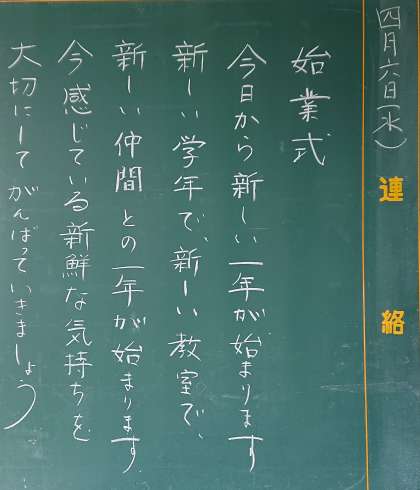 四月六日(水)
連絡
始業式
今日から新しい一年が、始まります
新しい学年で、新しい教室で、
新しい仲間との一年が始まります
今感じている新鮮な気持ちを
大切にして がんばっていきましょう